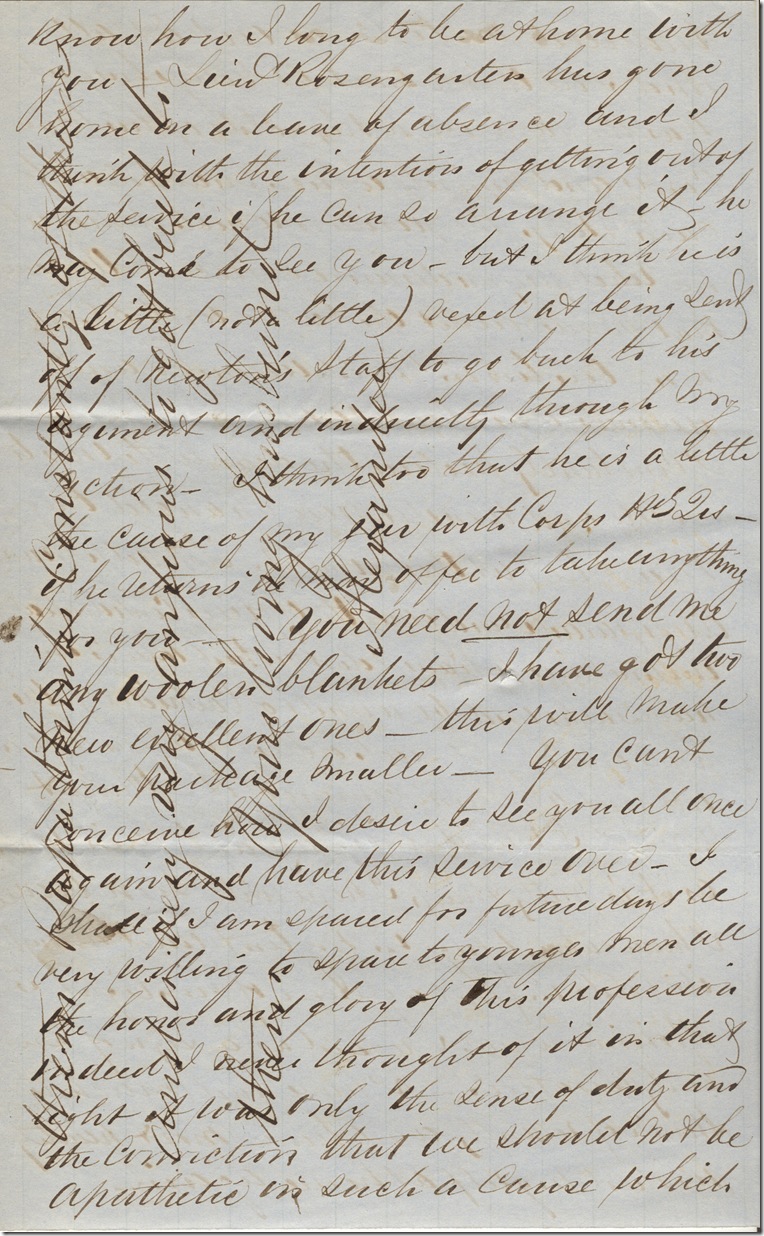 know how I long to be at home with
you Lieut Rosengarten has gone
home on a leave of absence and I
think with the intention of getting out of
the service if he can so arrange it - he
may come to see you - but I think he is
a little (not a little) vexed at being sent
off of Newton's Staff to go back to his
regiment and indirectly through my
action - I think too that he is a little
the cause of my war with Corps Hd Qrs -
if he returns he may offer to take anything
for you - You need not send me
any woolen blankets - I have got two
new excellent ones - this will make
your package smaller - You can't
conceive how I desire to see you all once
again and have this service over - I
shall if I am spared for future days be
very willing to spare to younger men all
the honor and glory of this profession
indeed I never thought of it in that
light it was only the sense of duty and
the conviction that we should not be
apathetic in such a cause which
their papa thinks constantly of
and is very anxious to be back
them Your loving husband
Alexander